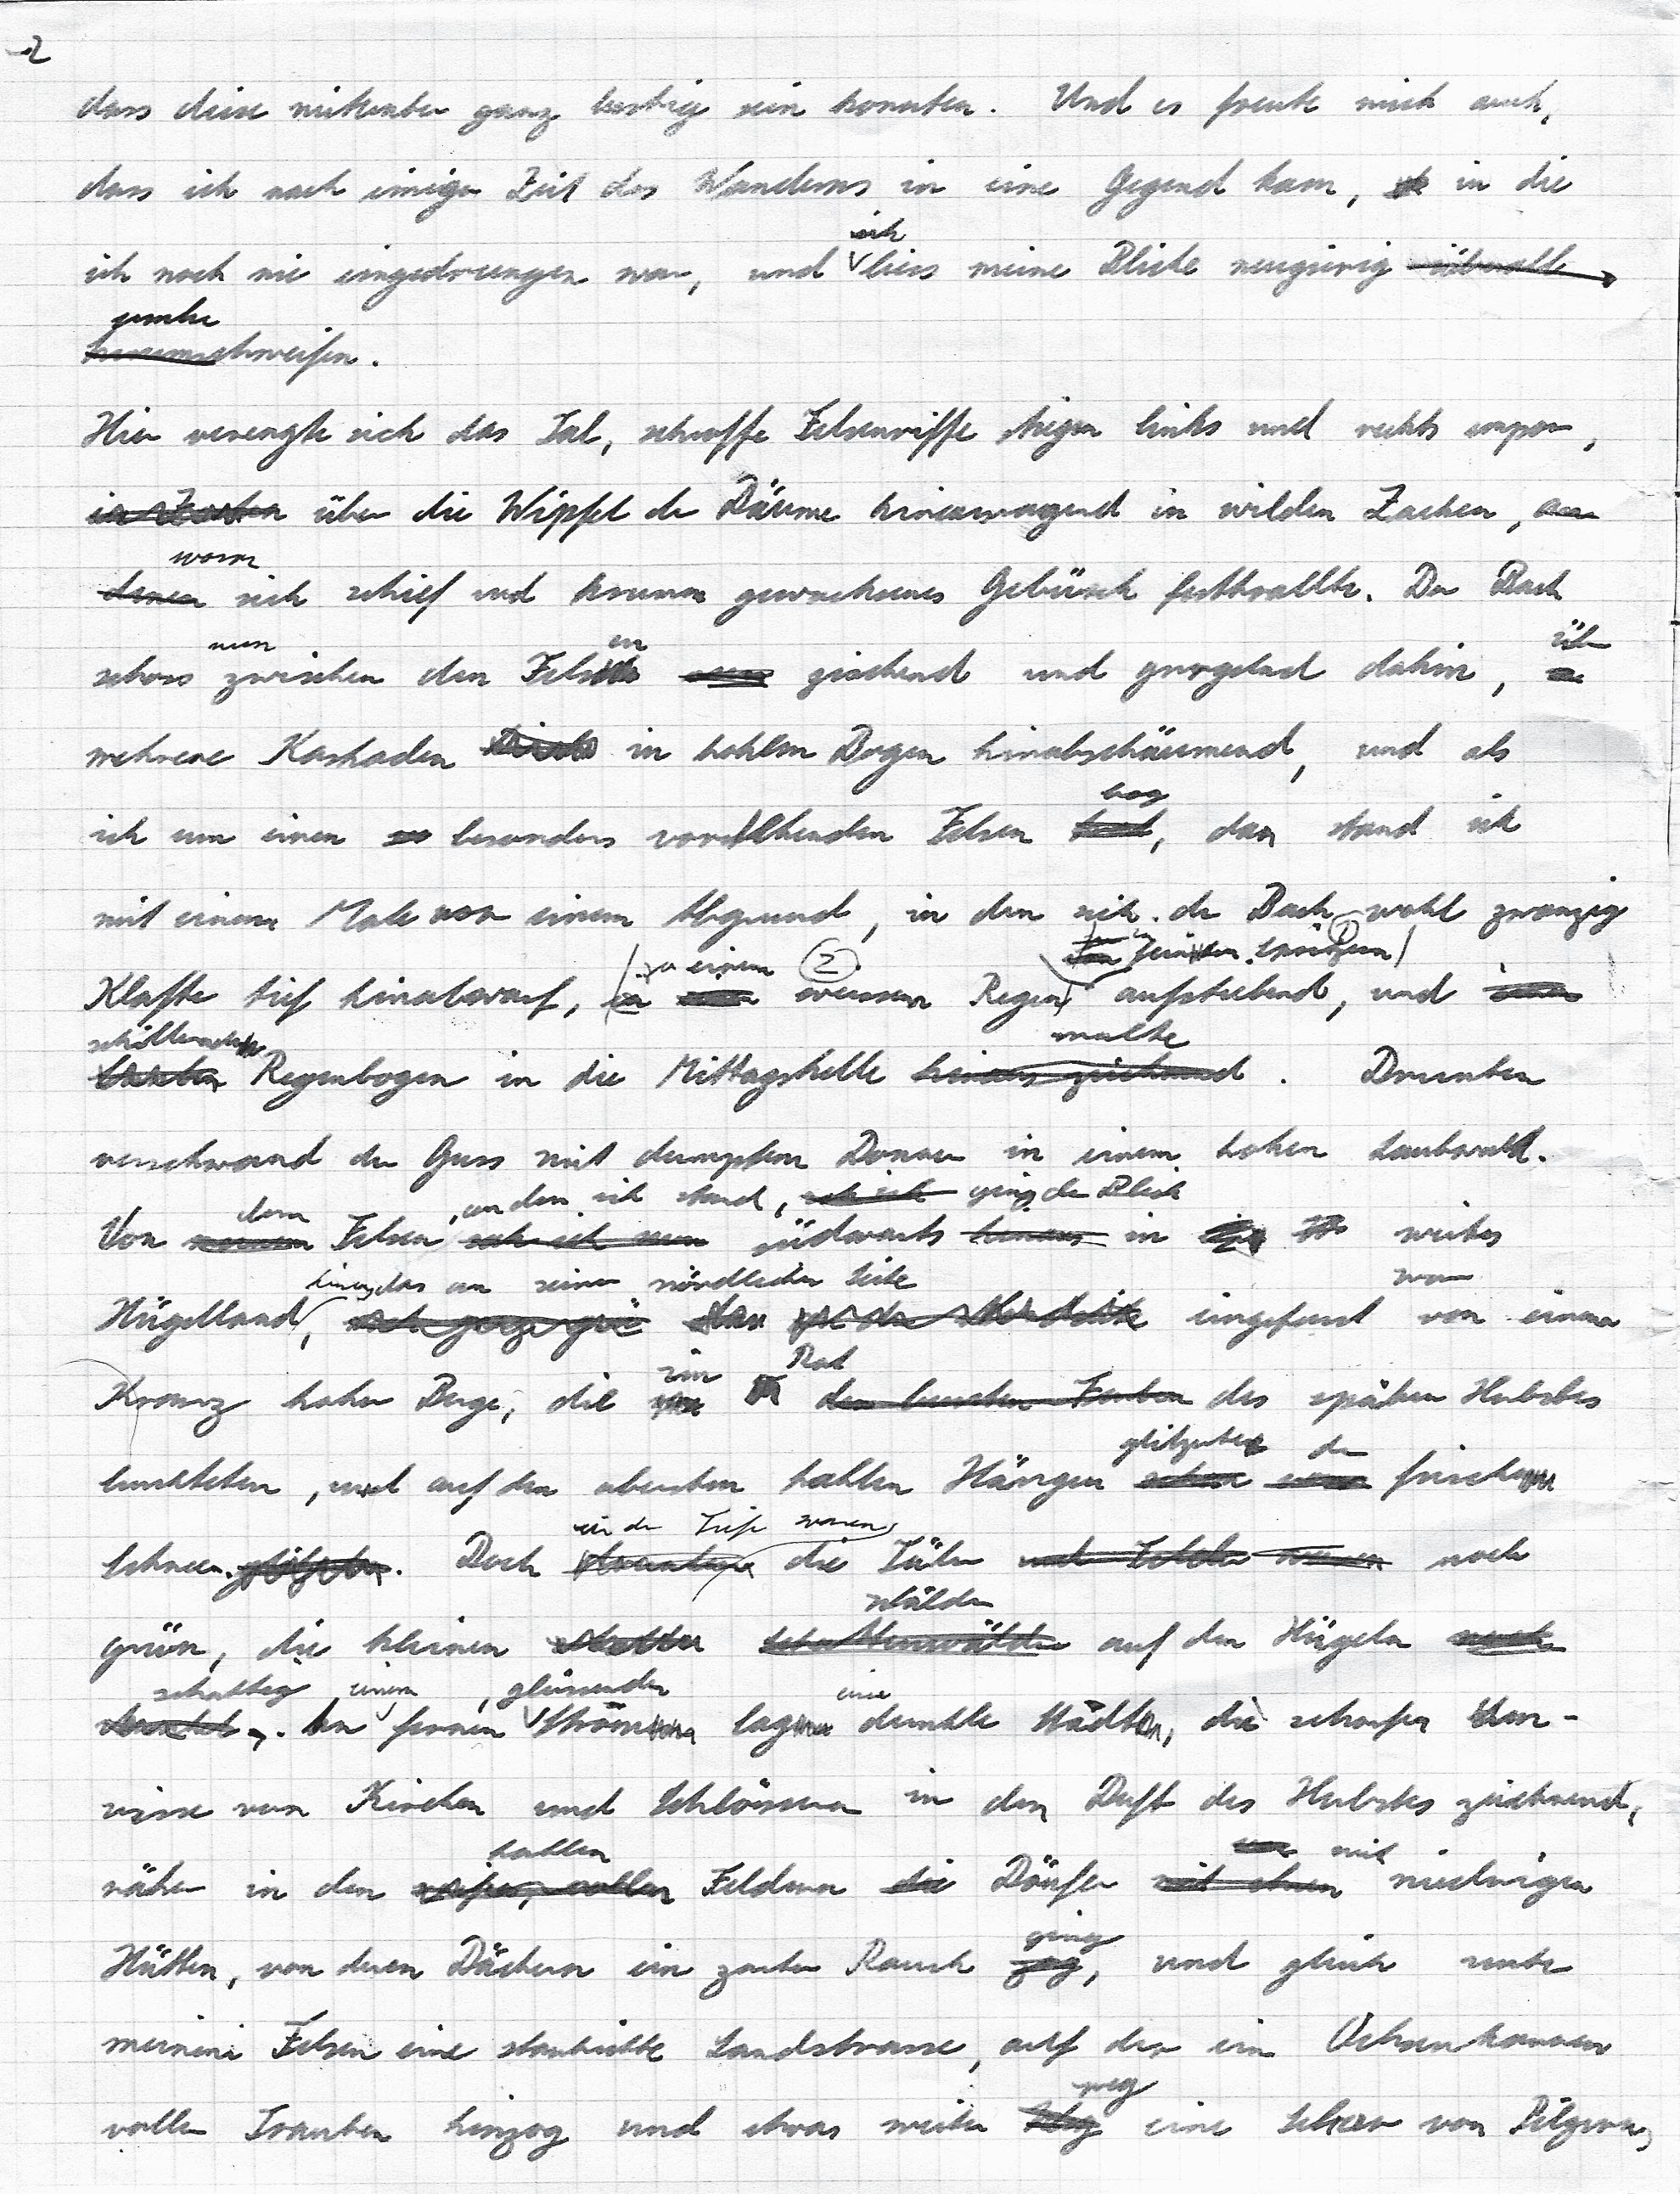 2
dass diese mitunter ganz lustig sein konnten. Und es freute mich auch,
dass ich nach einiger Zeit des Wanderns in eine Gegend kam, in die
ich
ich noch nie eingedrungen war, und liess meine Blicke neugierig überall
umher
herumschweifen.
Hier verengte sich das Tal, schroffe Felsenriffe stiegen links und rechts empor,
in Zacken über die Wipfel der Bäume hinausragend in wilden Zacken, an
woran
denen sich schief und krumm gewachsenes Gebüsch festkrallte. Der Bach
nun en über
schoss zwischen den Felsen zischend und gurgelnd dahin,
mehrere Kaskaden in hohlem Bogen hinabschäumend, und als
bog
ich um einen besonders vorstehenden Felsen, da stand ich
mit einem Male vor einem Abgrund, in den sich der Bach wohl zwanzig
zu einem 2 1
Klafter tief hinabwarf, weissen Regen aufstiebend, und
schillernde malte
Regenbogen in die Mittagshelle hinaus zeichnend. Drunten
verschwand der Guss mit dumpfem Donner in einem hohen Laubwald.
dem , an dem ich stand, ging der Blick
Von meinem Felsen sah ich nun südwärts hinaus in weites
hinein, das an seiner nördlichen Seite war
Hügelland, eingefasst von einem
im Rot
Kranz hoher Berge, die den bunten Farben des späten Herbstes
glitzerte der
leuchteten, und auf den obersten kahlen Hängen frische
in der Tiefe waren
Schnee. Doch drunten die Täler noch
Wälder
grün, die kleinen Schattenwälder auf den Hügeln noch
schattig einem , glänzenden eine
dunkel. An fernen Strom lag dunkle Städte, die scharfen Um-
risse von Kirchen und Schlössern in den Duft des Herbstes zeichnend,
kahlen mit
näher in den Feldern die Dörfer mit ihren niedrigen
ging
Hütten, von deren Dächern ein zarter Rauch zog, und gleich unter
meinem Felsen eine staubichte Landstrasse, auf der ein Ochsenkarren
weg
voller Trauben hinzog und etwas weiter eine Schar von Pilgern,